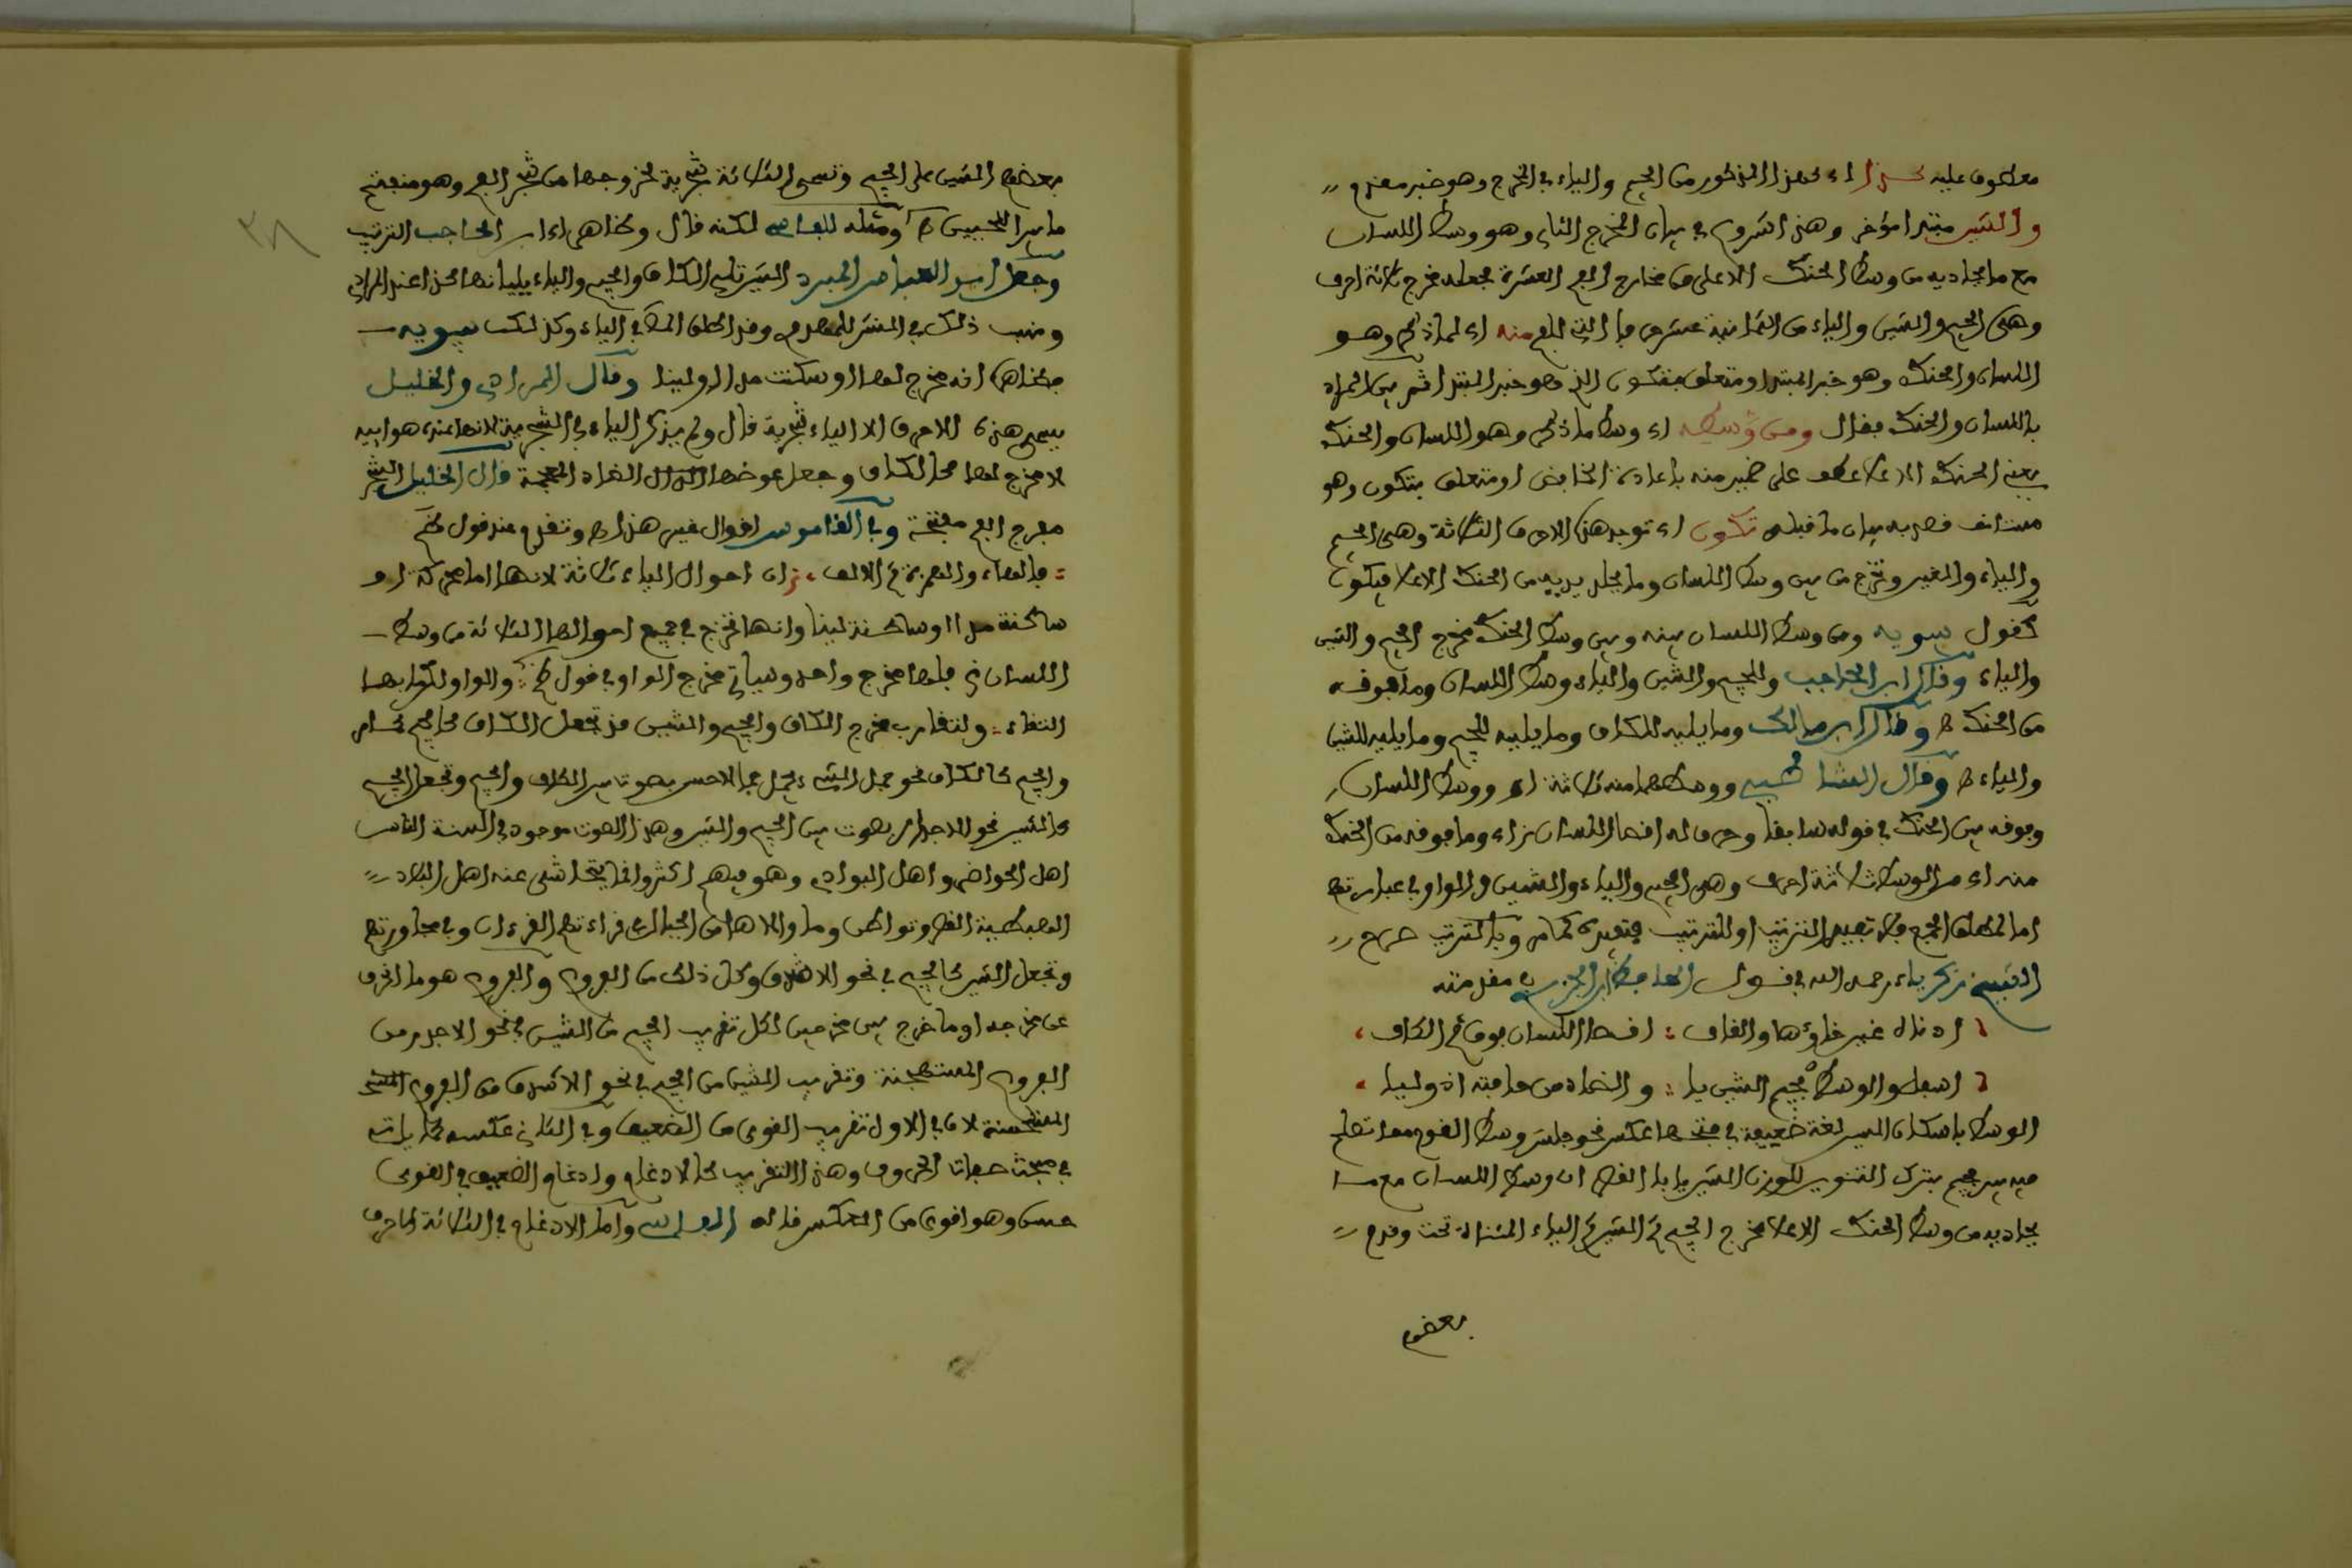 معطوف عليه كهذا اء كهذا المذكور من الجيم والياء في المخرج وهو خبر مقدم
والشين مبتدا مؤخر وهذا شروع في بيان المخرج الثاني وهو وسط اللسان
مع ما يحاذيه من وسط الحنك الاعلى من مخارج الفم العشرة فجعله مخرج ثلاثة احرف
وهي الجيم والشين والياء من الثمانية عشر فقال منه اى مما ذكر وهو
اللسان والحنك وهو خبر المبتدا ومتعلق بتكون الذي هو خبر المبتدا ثم بين المراد
باللسان والحنك فقال ومن وسطه اء وسط ما ذكر وهو اللسان والحنك
يعني الحنك الاعلا عطف على ضمير منه باعادة الخافض او متعلق بتكون وهو
مستانف قصد به بيان ما قبله تكون اء توجد هذه الاحرف الثلاثة وهي الجيم
والياء والشين وتخرج من بين وسط اللسان وما يحاذيه من الحنك الاعلا فيكون
كقول سيبويه ومن وسط اللسان بينه وبين وسط الحنك مخرج الجيم والشين
والياء وقال ابن الحاجب وللجيم والشين والياء وسط اللسان وما فوقه
من الحنك ﻫ وقال ابن مالك وما يليه للكاف وما يليه للجيم وما يليه للشين
والياء ﻫ وقال الشاطبي ووسطهما منه ثلاثة اء ووسط اللسان
وفوقه من الحنك في قوله سابقا وحرف له اقصا اللسان زاء وما فوقه من الحنك
منه اء من الوسط ثلاثة احرف وهي الجيم والياء والشين والواو في عبارتهم
اما لمطلق الجمع فلا تفيد الترتيب او للترتيب فتفيده كما مر وبالترتيب صرح
الشيخ زكرياء رحمه الله في قول الحافظ ابن الجزري في مقدمته
ادناه غين خاؤها والقاف : اقصا اللسان فوق ثم الكاف
اسفل والوسط فجيم الشين يا : والضاد من حافته اذ وليا
الوسط باسكان السين لغة ضعيفة في فتحها عكس نحو جلس وسط القوم مما تصلح
فيه بين فجيم بترك التنوين للوزن الشين يا بالقصر اى وسط اللسان مع ما
يحاذيه من وسط الحنك الاعلا مخرج الجيم ثم الشين ثم الياء المثناة تحت وقدم
بعضهم
٣٨
بعضهم الشين على الجيم وتسمى الثلاثة شجرية لخروجها من شجر الفم وهو منفتح
ما بين اللحيين ﻫ ومثله للفاسي لكنه قال وظاهر اء ابن الحاجب الترتيب
وجعل ابو العباس المبرد الشين تلي الكاف والجيم والياء يليانها كذا عند المرادي
ونسب ذلك في النشر للمهدوي وقد اطلق الشاطبي الياء وكذلك سيبويه
فظاهره انه مخرج لها ولو سكنت مدا او لينا وقال المرادي والخليل
يسمي هذه الاحرف الا الياء شجرية قال ولم يذكر الياء في الشجرية لانها عنده هوائية
لا مخرج لها كالالف وجعل عوضها الضاد المعجمة قال الخليل الشجر
مفرج الفم مفتحه وفي القاموس اقوال غير هذا ﻫ وتقدم عند قول نظم
: فالهاء والهمزة ثم الالف ، ان احوال الياء ثلاثة لانها اما متحركة او
ساكنة مدا او ساكنة لينا وانها تخرج في جميع احوالها الثلاثة من وسط
اللسان فلها مخرج واحد وسياتي مخرج الواو في قول ظم : والواو لكن بها
التقاء : ولتقارب مخرج الكاف والجيم والشين قد تجعل الكاف كالجيم كما مر
والجيم كالكاف نحو جمل الشيء يجمل جمالا حسن بصوت بين الكاف والجيم وتجعل الجيم
كالشين نحو الاجدر بصوت بين الجيم والشين وهذا الصوت موجود في السنة الناس
اهل الحواضر واهل البوادي وهو فيهم اكثر وانما يتحاشى عنه اهل البلاد
الهبطية القصر وتطوان وما والاها من الجبال في قراءتهم القرءان وفي محاورتهم
وتجعل الشين كالجيم في نحو الاشدق وكل ذلك من الفروع والفروع هو ما انحرف
عن مخرجه او ما خرج بين مخرجين لكل تقريب الجيم من الشين في نحو الاجدر من
الفروع المستهجنة وتقريب الشين من الجيم في نحو الاشدق من الفروع المستحـ
المستحسنة لان في الاول تقريب القوي من الضعيف وفي الثاني عكسه كما ياتي
في مبحث صفات الحروف وهذا التقريب كالادغام وادغام الضعيف في القوي
حسن وهو اقوى من العكس قاله الفاسي واما الادغام في الثلاثة احرف